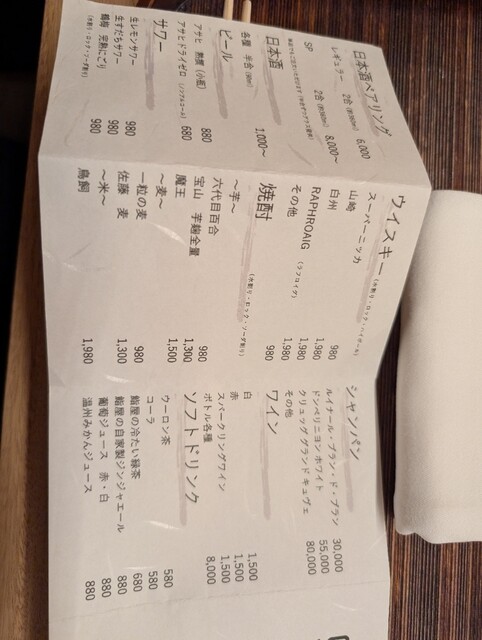 日本酒ペアリング
レギュラー 2合(約360ml) 6,000
SP 2合(約360ml) 8,000〜
日本酒
各種 半合(90ml) 1,000〜
ビール
アサヒ 熟撰(小瓶) 880
アサヒドライゼロ(ノンアルコール) 680
サワー
生レモンサワー 980
生すだちサワー 980
鶴梅 完熟にごり 980
(水割り・ロック・ソーダ割り)
ウイスキー(水割り・ロック・ハイボール)
スーパーニッカ 980
山崎 1,980
白州 1,980
RAPHROAIG(ラフロイグ) 1,980
その他 980
焼酎(水割り・ロック・ソーダ割り)
〜芋〜
六代目百合 980
宝山 芋麹全量 1,300
魔王 1,500
〜麦〜
一粒の麦 980
佐藤 麦 1,300
〜米〜
鳥飼 1,980
シャンパン
ルイナール・ブラン・ド・ブラン 30,000
ドンペリニヨン ホワイト 55,000
クリュッグ グランド キュヴェ 80,000
その他
ワイン
白 1,500
赤 1,500
スパークリングワイン 1,500
ボトル各種 8,000
ソフトドリンク
ウーロン茶 580
コーラ 580
鮨屋の冷たい緑茶 680
鮨屋の自家製ジンジャエール 880
葡萄ジュース 赤・白 880
温州みかんジュース 880